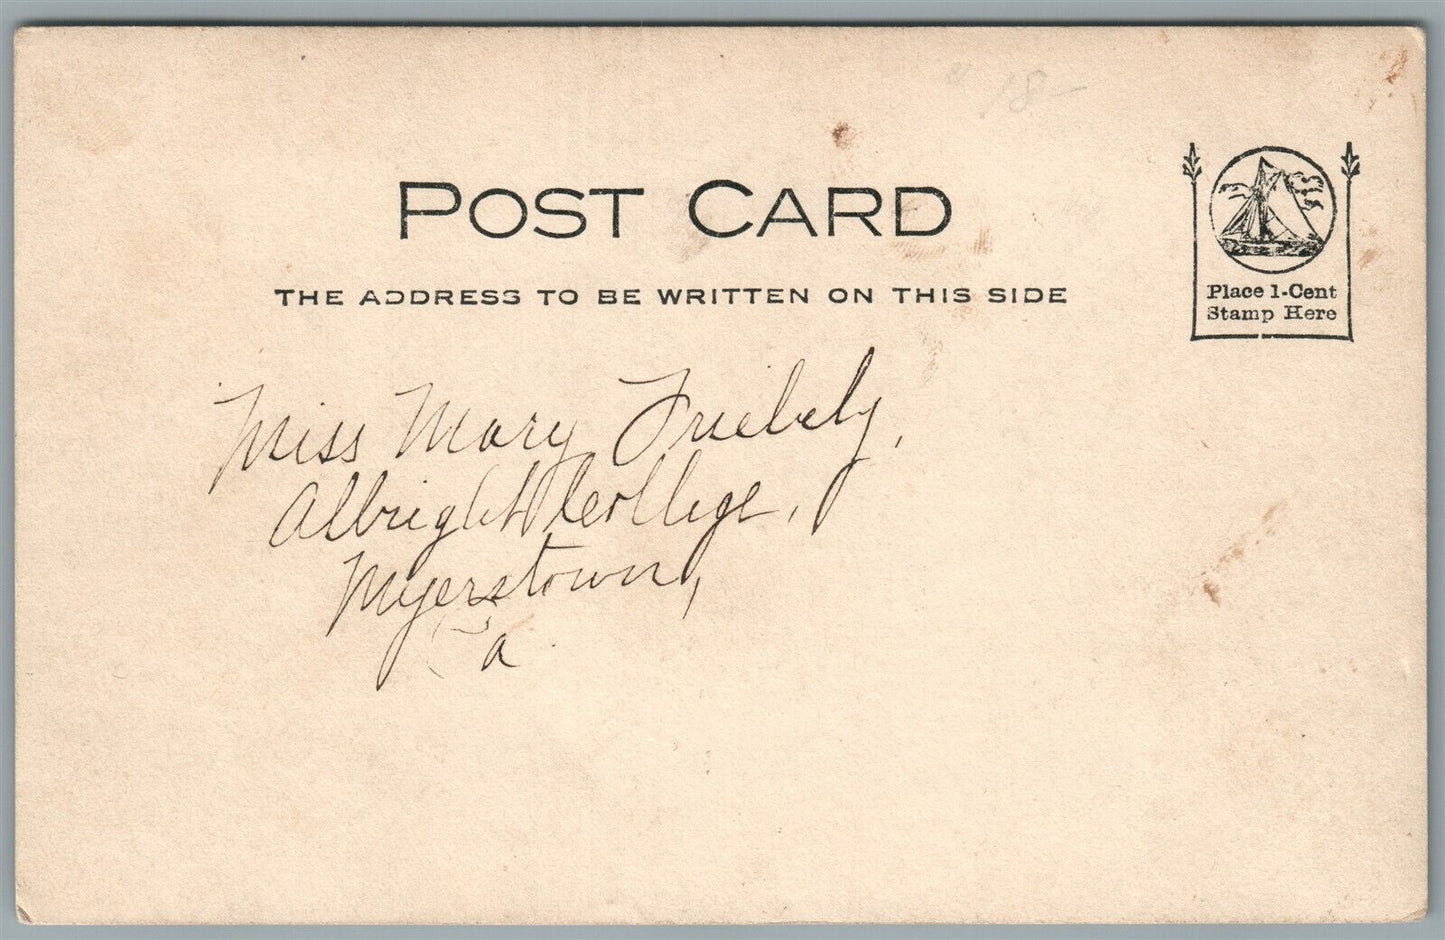 18-
POST CARD
THE ADDRESS TO BE WRITTEN ON THIS SIDE
Place 1-Cent
Stamp Here
Miss Mary
Albright College,
Myerstown,
Pa